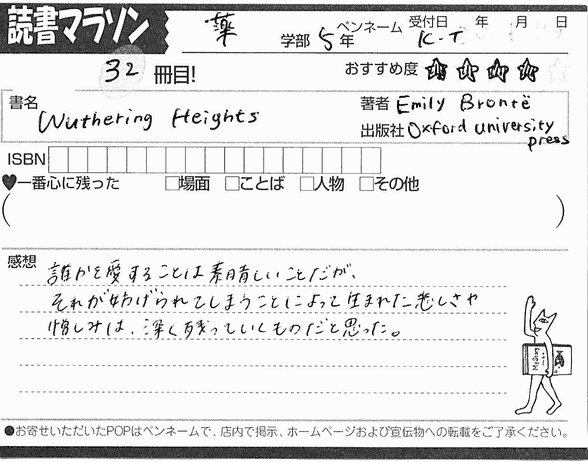 読書マラソン 薬 学部 5年 ペンネーム K.T 受付日 年 月 日
32 冊目! おすすめ度 ★★★★☆
書名 Wuthering Heights
著者 Emily Brontë
出版社 Oxford University press
ISBN
♥一番心に残った □場面 □ことば □人物 □その他
( )
感想
誰かを愛することは素晴しいことだが、
それが妨げられてしまうことによって生まれた悲しさや
憎しみは、深く残っていくものだと思った。
●お寄せいただいたPOPはペンネームで、店内で掲示、ホームページおよび宣伝物への転載をご了承ください。